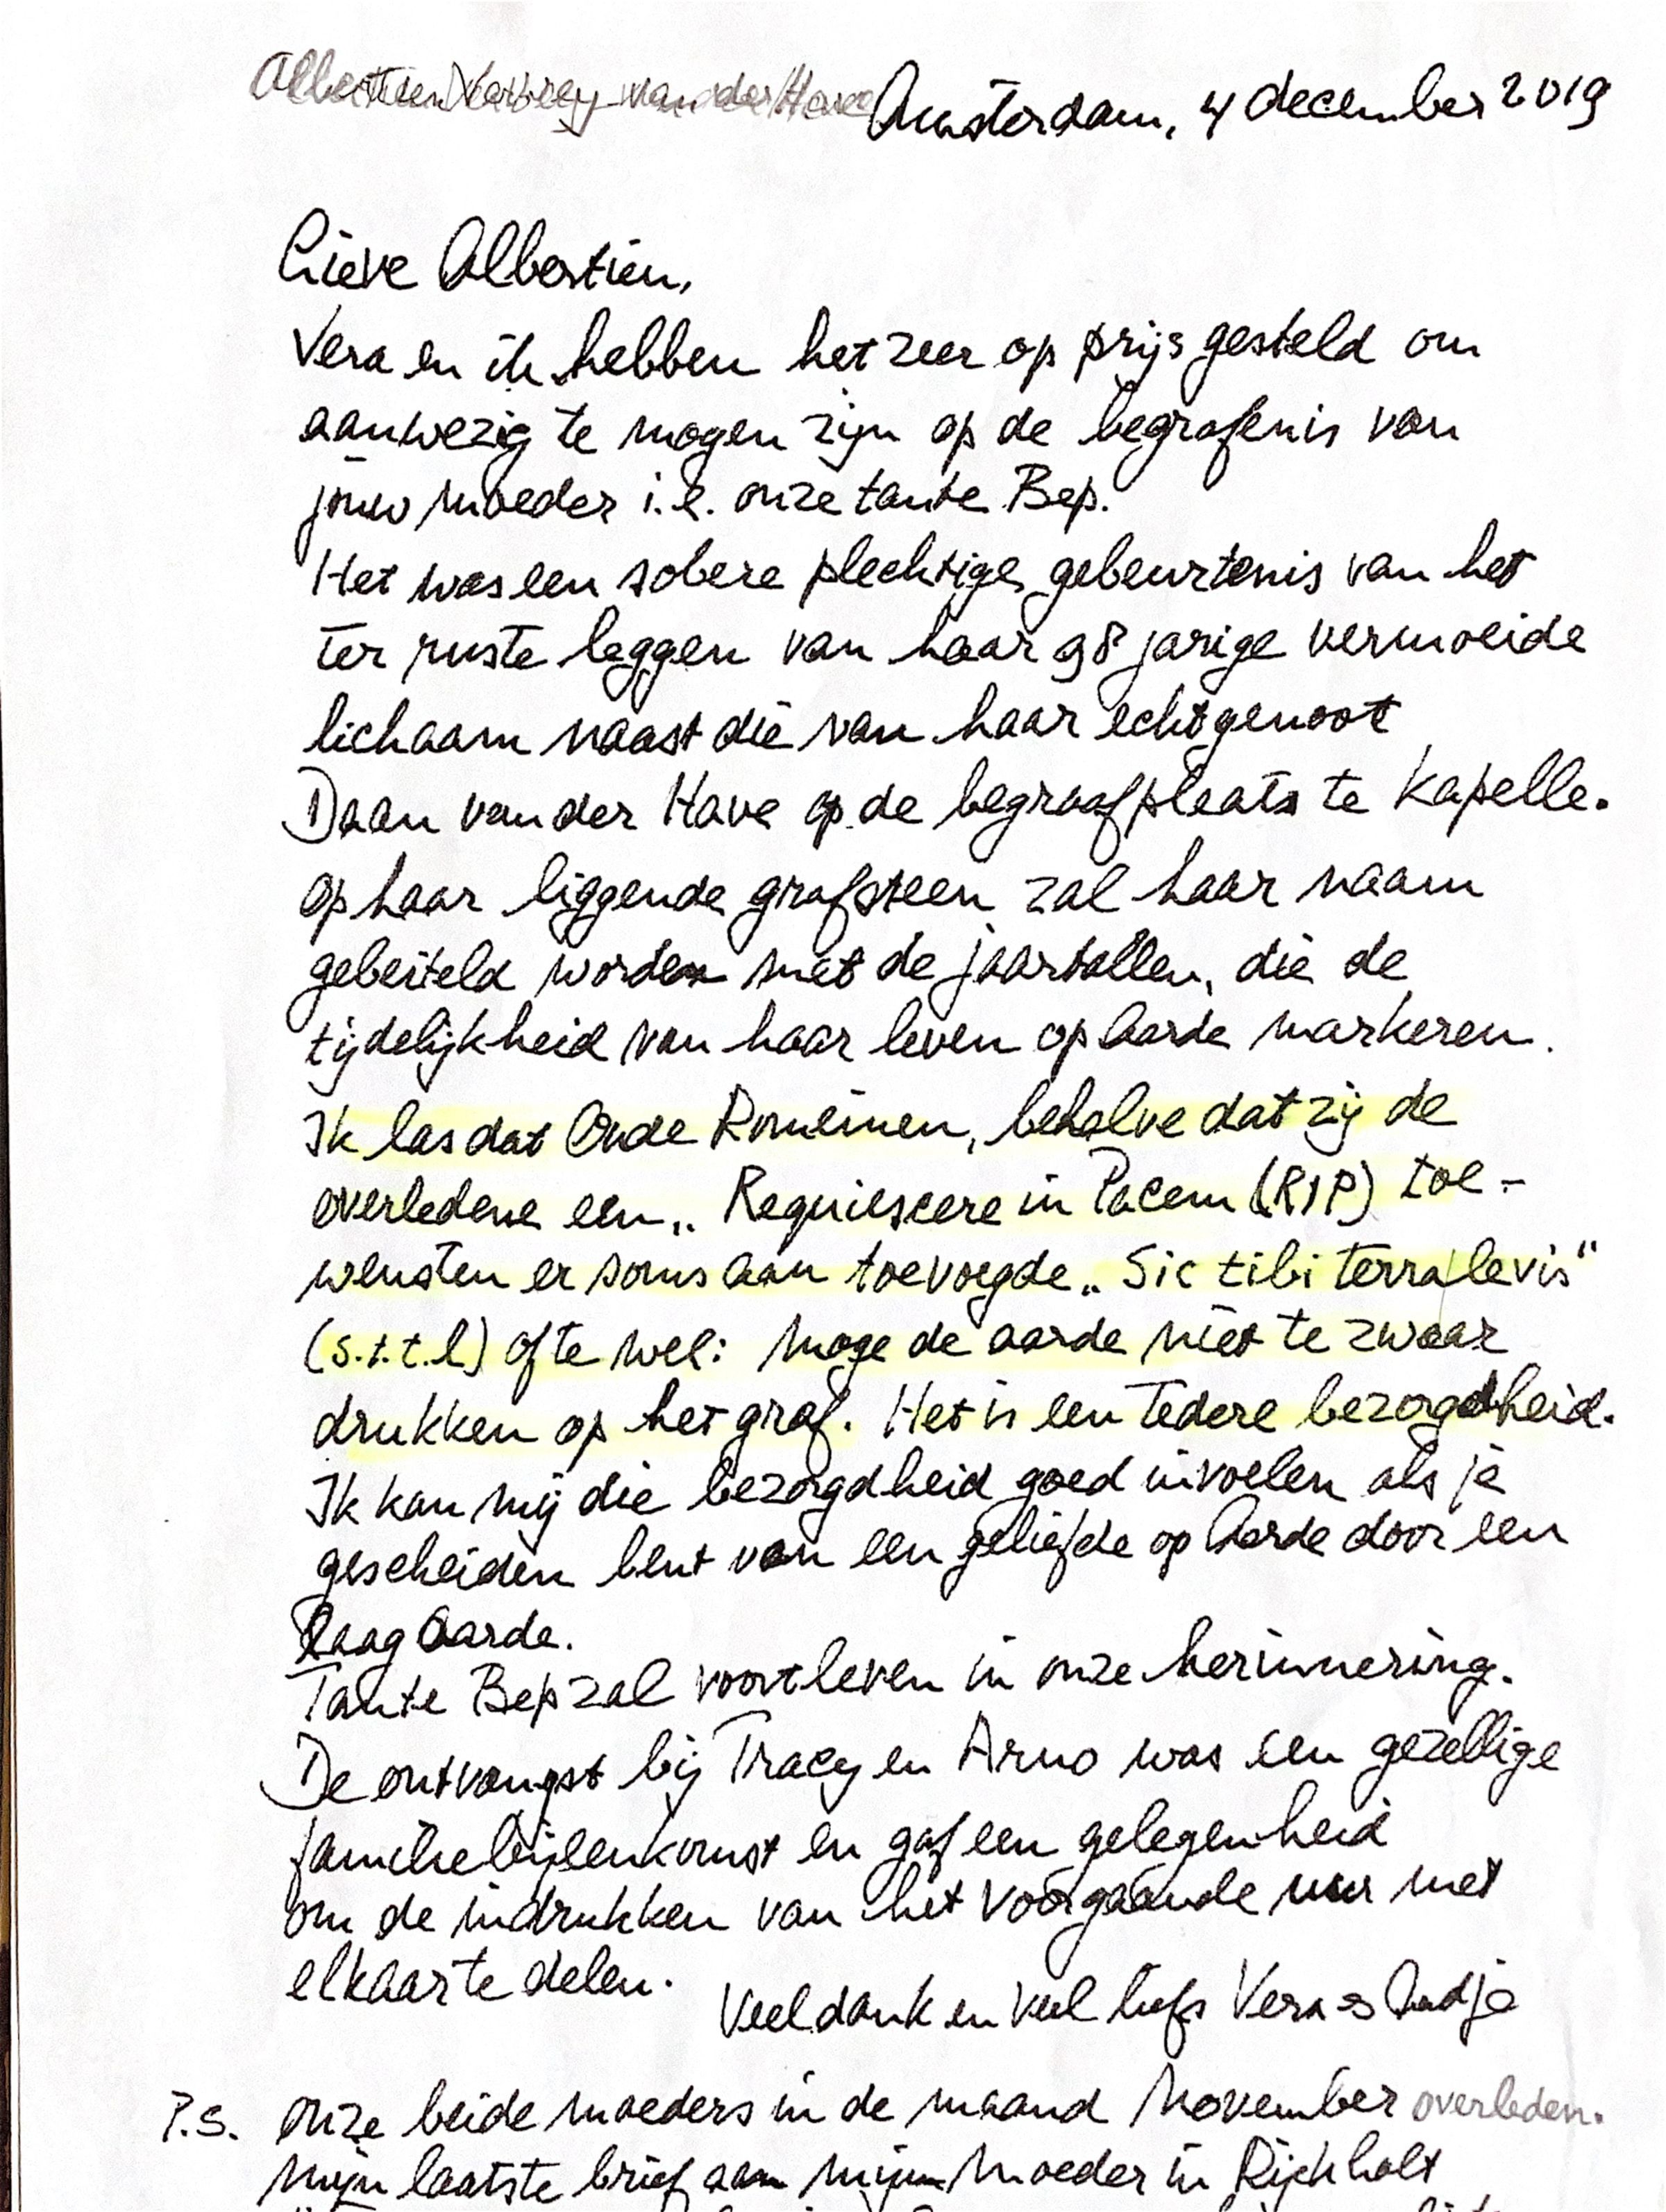 Albertien Verbrey-van der Have
Amsterdam, 4 december 2019
Lieve Albertien,
Vera en ik hebben het zeer op prijs gesteld om
aanwezig te mogen zijn op de begrafenis van
jouw moeder i.e. onze tante Bep.
Het was een sobere plechtige gebeurtenis van het
ter ruste leggen van haar 98 jarige vermoeide
lichaam naast die van haar echtgenoot
Daan van der Have op de begraafplaats te Kapelle.
Op haar liggende grafsteen zal haar naam
gebeiteld worden met de jaartallen, die de
tijdelijkheid van haar leven op aarde markeren.
Ik las dat Oude Romeinen, behalve dat zij de
overledene een „Requiescere in Pacem (RIP) toe-
wensten er soms aan toevoegde „Sic tibi terra levis"
(s.t.t.l) ofte wel: moge de aarde niet te zwaar
drukken op het graf. Het is een tedere bezorgdheid.
Ik kan mij die bezorgdheid goed invoelen als je
gescheiden bent van een geliefde op Aarde door een
laag Aarde.
Tante Bep zal voortleven in onze herinnering.
De ontvangst bij Tracy en Arno was een gezellige
familiebijeenkomst en gaf een gelegenheid
om de indrukken van het voorgaande uur met
elkaar te delen.
Veel dank en veel liefs Vera &
P.S. Onze beide moeders in de maand November overleden.
Mijn laatste brief aan mijn moeder in Rijckholt